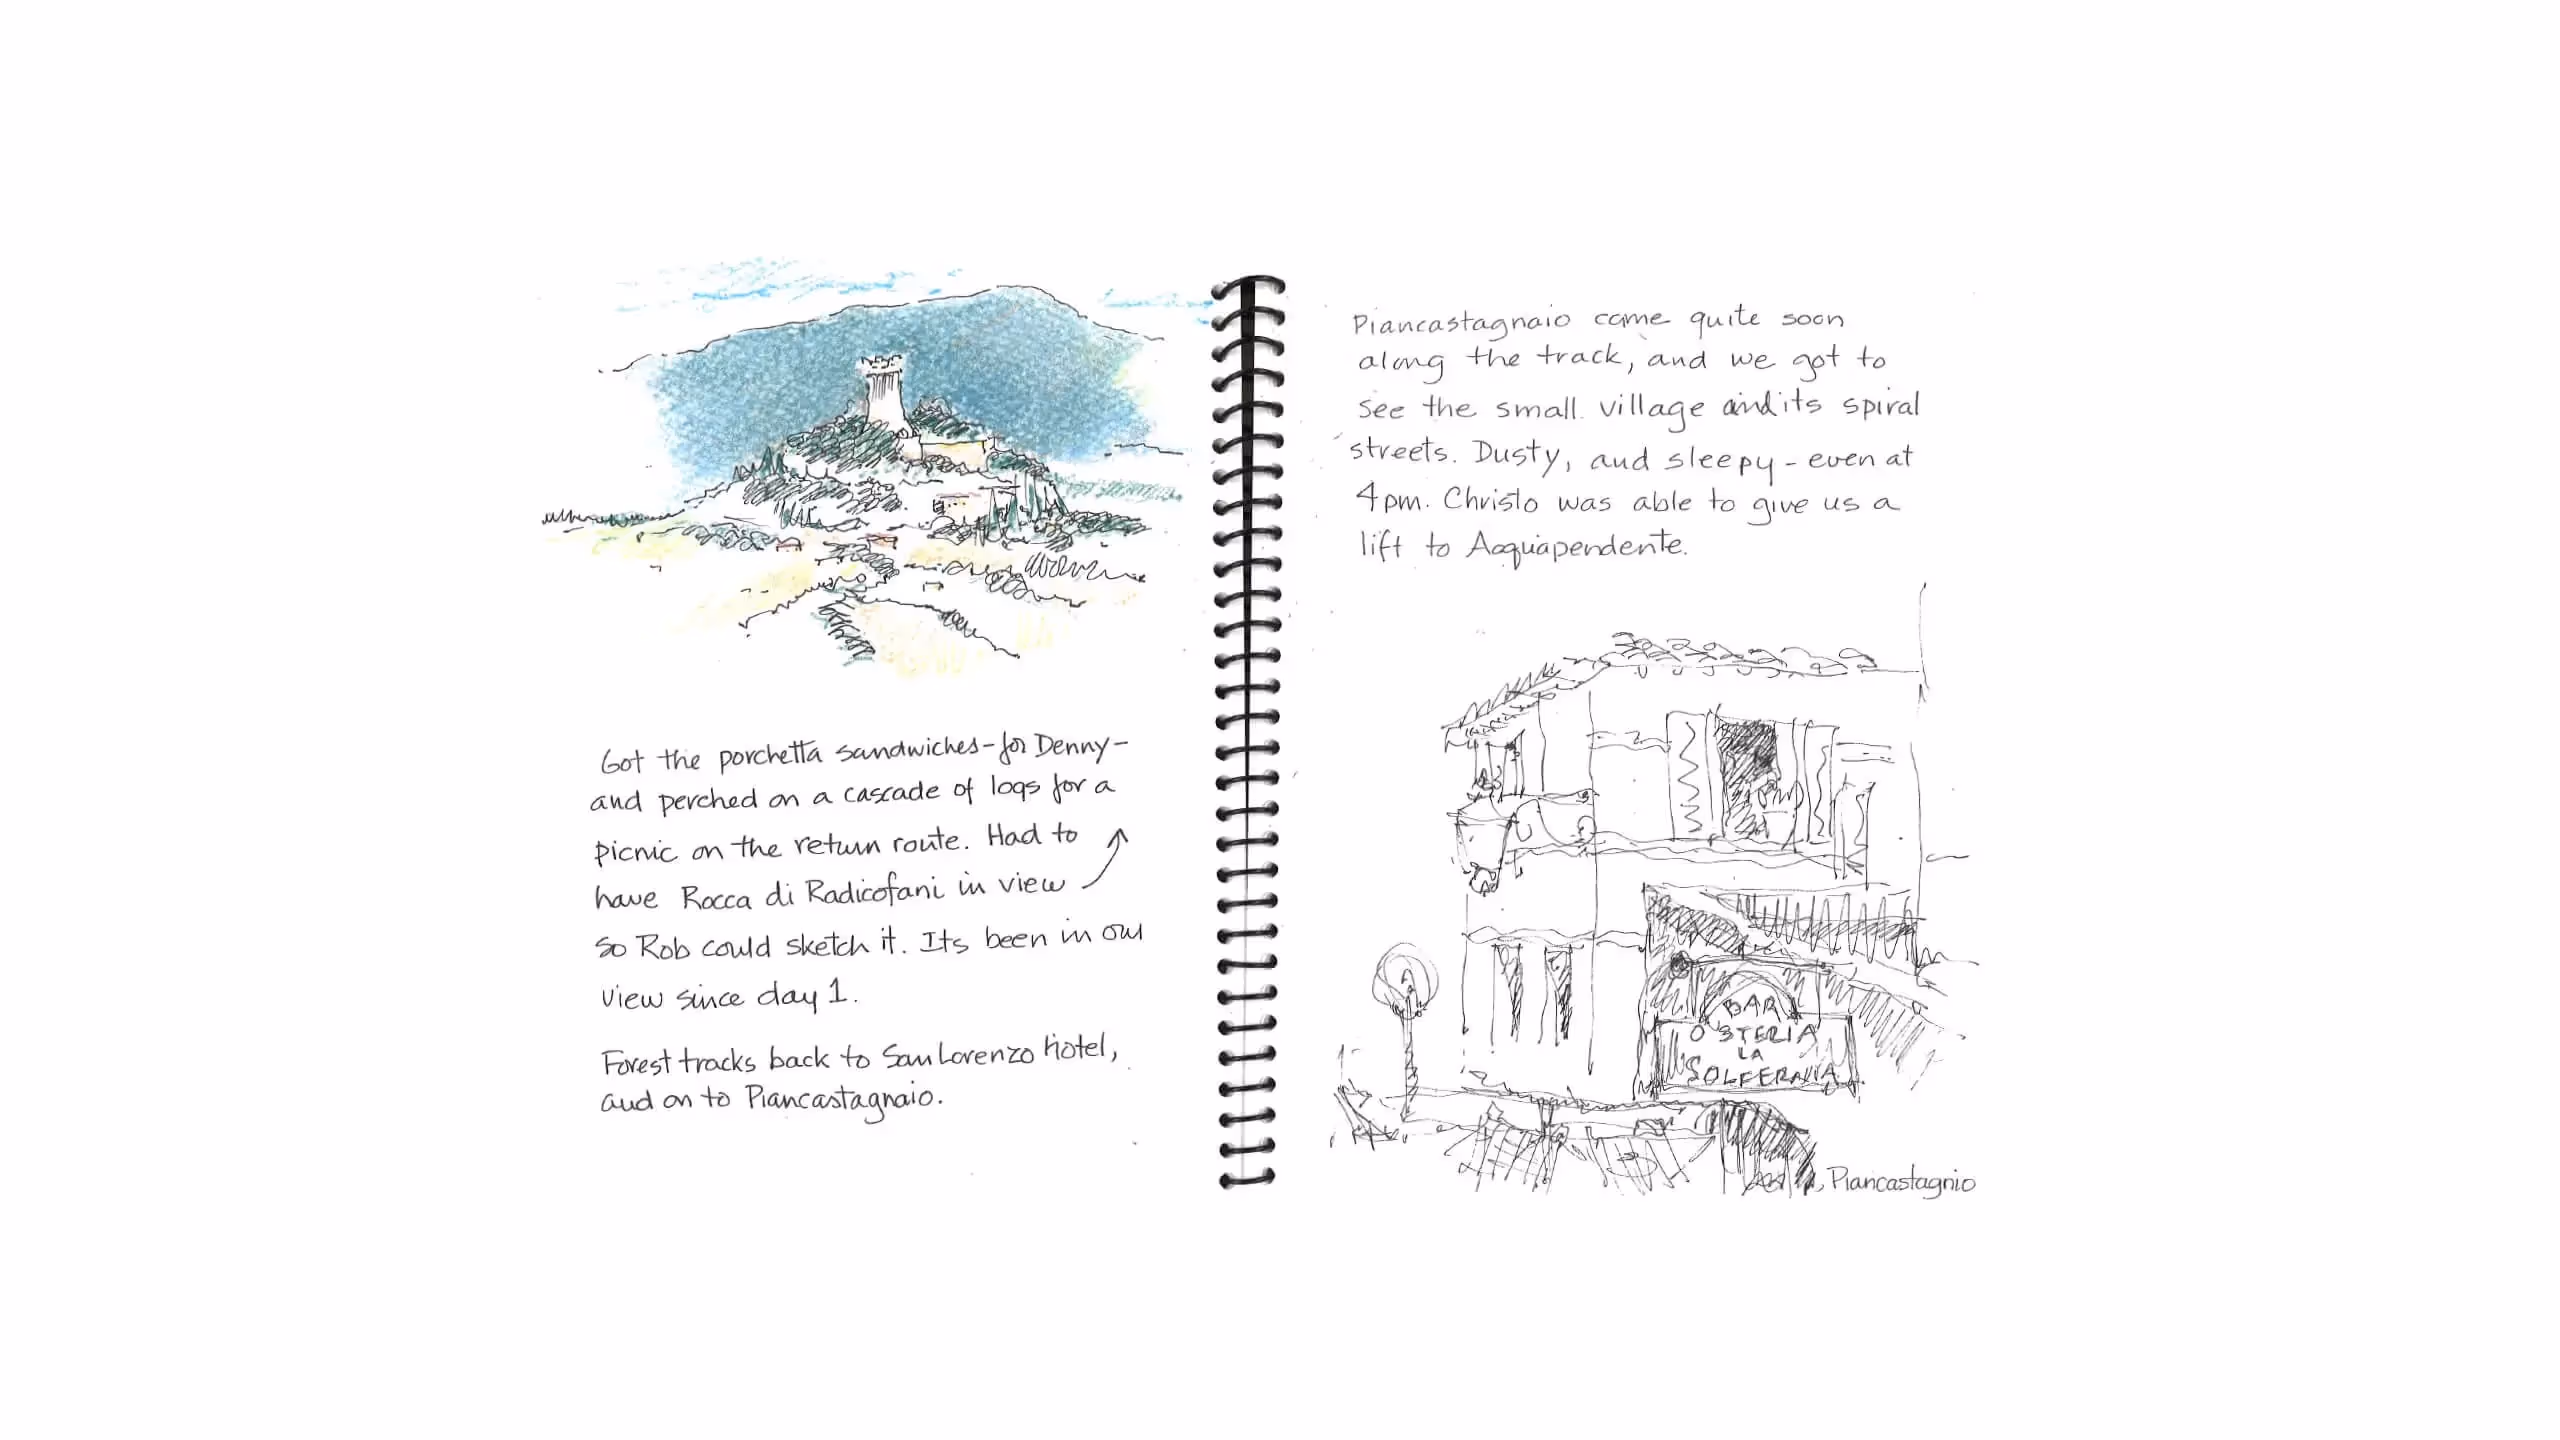 Got the porchetta sandwiches - for Denny -
and perched on a cascade of logs for a
picnic on the return route. Had to
have Rocca di Radicofani in view
so Rob could sketch it. Its been in our
view since day 1.
Forest tracks back to San Lorenzo hotel,
and on to Piancastagnaio.
Piancastagnaio came quite soon
along the track, and we got to
see the small village and its spiral
streets. Dusty, and sleepy - even at
4pm. Christo was able to give us a
lift to Acquapendente.
BAR
OSTERIA
LA
SOLFERANIA
Piancastagnio